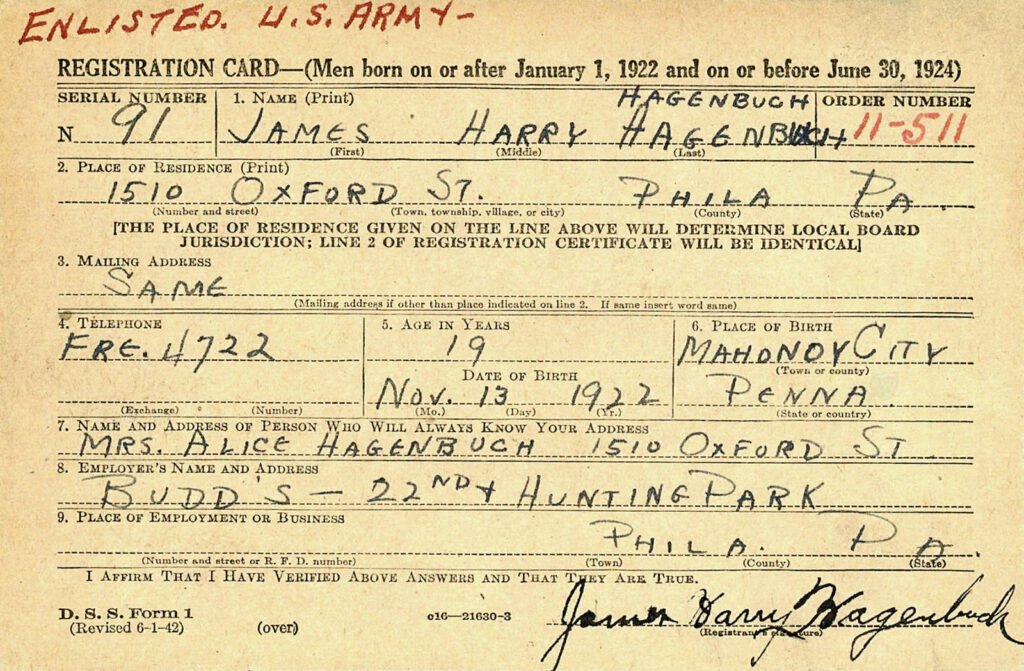 ENLISTED. U.S. ARMY-
REGISTRATION CARD—(Men born on or after January 1, 1922 and on or before June 30, 1924)
SERIAL NUMBER 1. NAME (Print) HAGENBUCH ORDER NUMBER
N 91 JAMES HARRY HAGENBUCH 11-511
(First) (Middle) (Last)
2. PLACE OF RESIDENCE (Print)
1510 OXFORD ST. PHILA PA.
(Number and street) (Town, township, village, or city) (County) (State)
[THE PLACE OF RESIDENCE GIVEN ON THE LINE ABOVE WILL DETERMINE LOCAL BOARD
JURISDICTION; LINE 2 OF REGISTRATION CERTIFICATE WILL BE IDENTICAL]
3. MAILING ADDRESS
SAME
(Mailing address if other than place indicated on line 2. If same insert word same)
4. TELEPHONE 5. AGE IN YEARS 6. PLACE OF BIRTH
FRE. 4722 19 MAHONOY CITY
(Town or county)
DATE OF BIRTH
NOV. 13 1922 PENNA
(Exchange) (Number) (Mo.) (Day) (Yr.) (State or country)
7. NAME AND ADDRESS OF PERSON WHO WILL ALWAYS KNOW YOUR ADDRESS
MRS. ALICE HAGENBUCH 1510 OXFORD ST
8. EMPLOYER'S NAME AND ADDRESS
BUDD'S — 22ND & HUNTING PARK
9. PLACE OF EMPLOYMENT OR BUSINESS
PHILA. PA.
(Number and street or R. F. D. number) (Town) (County) (State)
I AFFIRM THAT I HAVE VERIFIED ABOVE ANSWERS AND THAT THEY ARE TRUE.
D. S. S. Form 1
(Revised 6-1-42) (over) c16—21630-3 James Harry Hagenbuch
(Registrant's signature)